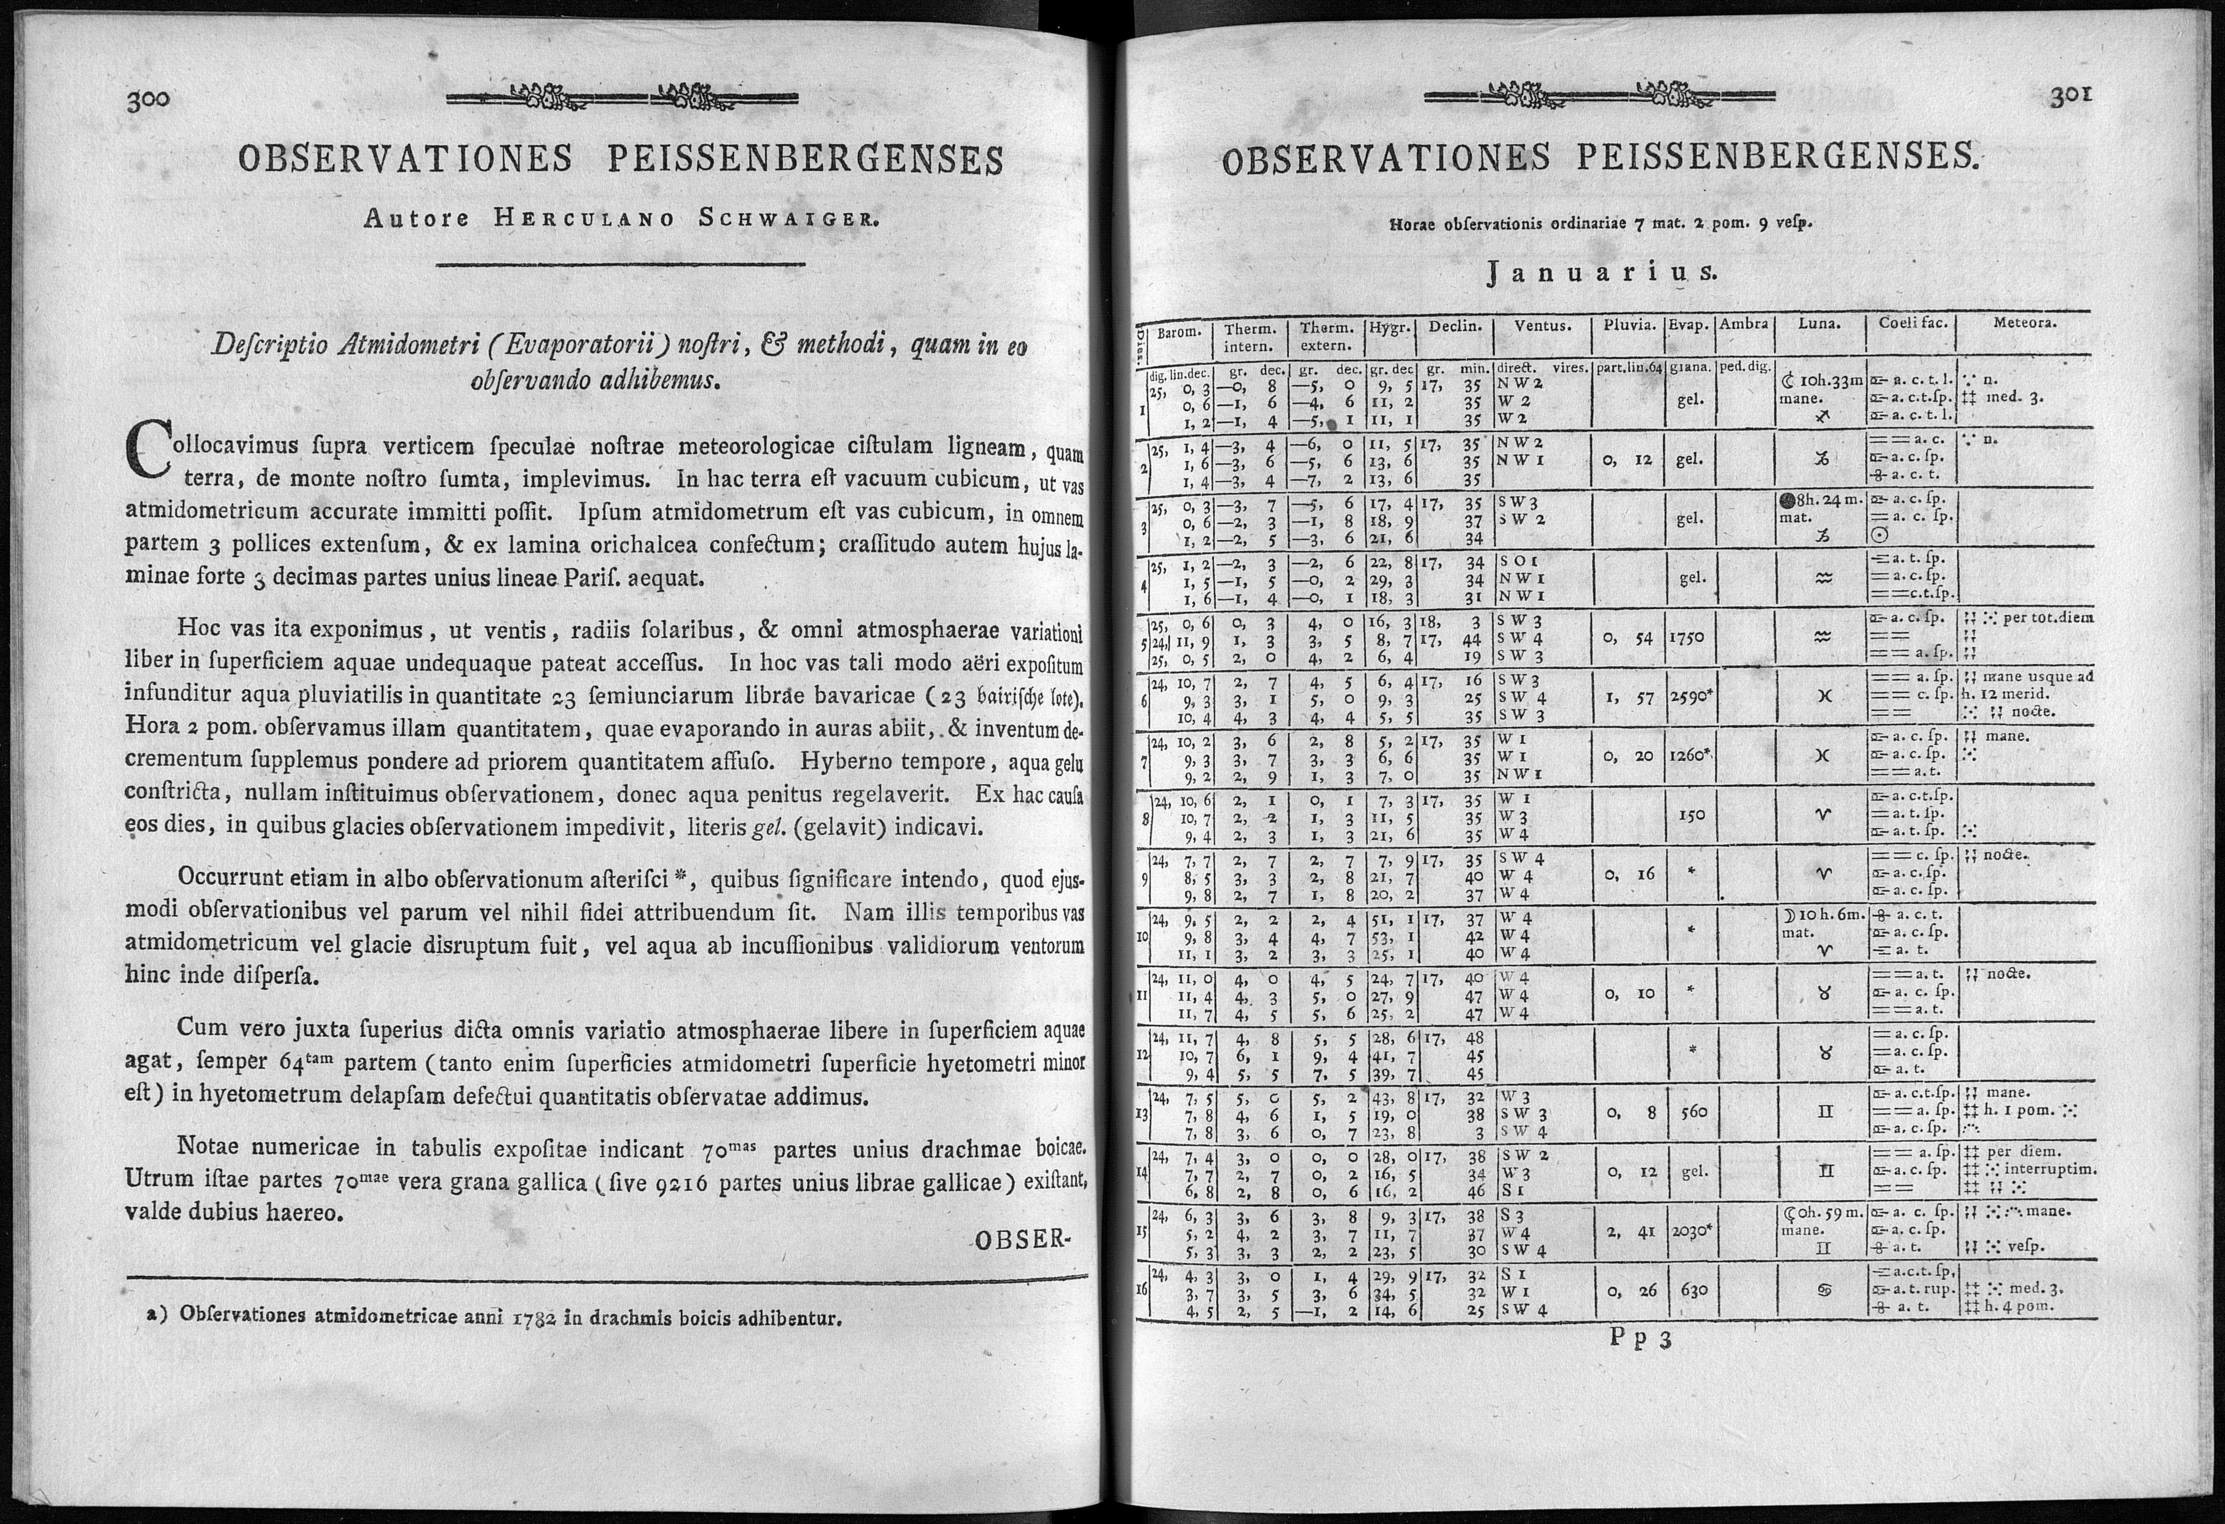 300
OBSERVATIONES PEISSENBERGENSES
Autore HERCULANO SCHWAIGER.
Deſcriptio Atmidometri (Evaporatorii) noſtri, & methodi, quam in eo
obſervando adhibemus.
Collocavimus ſupra verticem ſpeculae noſtrae meteorologicae ciſtulam ligneam, quam
terra, de monte noſtro ſumta, implevimus. In hac terra eſt vacuum cubicum, ut vas
atmidometricum accurate immitti poſſit. Ipſum atmidometrum eſt vas cubicum, in omnem
partem 3 pollices extenſum, & ex lamina orichalcea confectum; craſſitudo autem hujus la-
minae forte 3 decimas partes unius lineae Pariſ. aequat.
Hoc vas ita exponimus, ut ventis, radiis ſolaribus, & omni atmosphaerae variationi
liber in ſuperficiem aquae undequaque pateat acceſſus. In hoc vas tali modo aëri expoſitum
infunditur aqua pluviatilis in quantitate 23 ſemiunciarum librae bavaricae (23 bairiſche lote).
Hora 2 pom. obſervamus illam quantitatem, quae evaporando in auras abiit, & inventum de-
crementum ſupplemus pondere ad priorem quantitatem affuſo. Hyberno tempore, aqua gelu
conſtricta, nullam inſtituimus obſervationem, donec aqua penitus regelaverit. Ex hac cauſa
eos dies, in quibus glacies obſervationem impedivit, literis gel. (gelavit) indicavi.
Occurrunt etiam in albo obſervationum aſteriſci *, quibus ſignificare intendo, quod ejus-
modi obſervationibus vel parum vel nihil fidei attribuendum ſit. Nam illis temporibus vas
atmidometricum vel glacie disruptum fuit, vel aqua ab incuſſionibus validiorum ventorum
hinc inde diſperſa.
Cum vero juxta ſuperius dicta omnis variatio atmosphaerae libere in ſuperficiem aquae
agat, ſemper 64tam partem (tanto enim ſuperficies atmidometri ſuperficie hyetometri minor
eſt) in hyetometrum delapſam defectui quantitatis obſervatae addimus.
Notae numericae in tabulis expoſitae indicant 70mas partes unius drachmae boicae.
Utrum iſtae partes 70mae vera grana gallica (ſive 9216 partes unius librae gallicae) exiſtant,
valde dubius haereo.
OBSER-
a) Obſervationes atmidometricae anni 1782 in drachmis boicis adhibentur.
301
OBSERVATIONES PEISSENBERGENSES.
Horae obſervationis ordinariae 7 mat. 2 pom. 9 veſp.
Januarius.
Dies. Barom. Therm. intern. Therm. extern. Hygr. Declin. Ventus. Pluvia. Evap. Ambra Luna. Coeli fac. Meteora.
dig. lin. dec. gr. dec. gr. dec. gr. dec gr. min. direct. vires. part. lin. 64 grana. ped. dig.
25, 0, 3 —0, 8 —5, 0 9, 5 17, 35 N W 2 ☾ 10h. 33m a. c. t. l. n.
1 0, 6 —1, 6 —4, 6 11, 2 35 W 2 gel. mane. a. c. t. ſp. ‡‡ med. 3.
1, 2 —1, 4 —5, 1 11, 1 35 W 2 ♐ a. c. t. l.
25, 1, 4 —3, 4 —6, 0 11, 5 17, 35 N W 2 == a. c. n.
2 1, 6 —3, 6 —5, 6 13, 6 35 N W 1 0, 12 gel. ♑ a. c. ſp.
1, 4 —3, 4 —7, 2 13, 6 35 a. c. t.
25, 0, 3 —3, 7 —5, 6 17, 4 17, 35 S W 3 ● 8h. 24 m. a. c. ſp.
3 0, 6 —2, 3 —1, 8 18, 9 37 S W 2 gel. mat. = a. c. ſp.
1, 2 —2, 5 —3, 6 21, 6 34 ♑ ☉
25, 1, 2 —2, 3 —2, 6 22, 8 17, 34 S O 1 a. t. ſp.
4 1, 5 —1, 5 —0, 2 29, 3 34 N W 1 gel. ♒ = a. c. ſp.
1, 6 —1, 4 —0, 1 18, 3 31 N W 1 == c. t. ſp.
25, 0, 6 0, 3 4, 0 16, 3 18, 3 S W 3 a. c. ſp. per tot. diem
5 24, 11, 9 1, 3 3, 5 8, 7 17, 44 S W 4 0, 54 1750 ♒ ==
25, 0, 5 2, 0 4, 2 6, 4 19 S W 3 == a. ſp.
24, 10, 7 2, 7 4, 5 6, 4 17, 16 S W 3 == a. ſp. mane usque ad
6 9, 3 3, 1 5, 0 9, 3 25 S W 4 1, 57 2590* ♓ == c. ſp. h. 12 merid.
10, 4 4, 3 4, 4 5, 5 35 S W 3 == nocte.
24, 10, 2 3, 6 2, 8 5, 2 17, 35 W 1 a. c. ſp. mane.
7 9, 3 3, 7 3, 3 6, 6 35 W 1 0, 20 1260* ♓ a. c. ſp.
9, 2 2, 9 1, 3 7, 0 35 N W 1 == a. t.
24, 10, 6 2, 1 0, 1 7, 3 17, 35 W 1 a. c. t. ſp.
8 10, 7 2, 2 1, 3 11, 5 35 W 3 150 ♈ = a. t. ſp.
9, 4 2, 3 1, 3 21, 6 35 W 4 a. t. ſp.
24, 7, 7 2, 7 2, 7 7, 9 17, 35 S W 4 == c. ſp. nocte.
9 8, 5 3, 3 2, 8 21, 7 40 W 4 0, 16 * ♈ a. c. ſp.
9, 8 2, 7 1, 8 20, 2 37 W 4 a. c. ſp.
24, 9, 5 2, 2 2, 4 51, 1 17, 37 W 4 ☽ 10 h. 6m. a. c. t.
10 9, 8 3, 4 4, 7 53, 1 42 W 4 * mat. a. c. ſp.
11, 1 3, 2 3, 3 25, 1 40 W 4 ♈ a. t.
24, 11, 0 4, 0 4, 5 24, 7 17, 40 W 4 == a. t. nocte.
11 11, 4 4, 3 5, 0 27, 9 47 W 4 0, 10 * ♉ a. c. ſp.
11, 7 4, 5 5, 6 25, 2 47 W 4 == a. t.
24, 11, 7 4, 8 5, 5 28, 6 17, 48 = a. c. ſp.
12 10, 7 6, 1 9, 4 41, 7 45 * ♉ = a. c. ſp.
9, 4 5, 5 7, 5 39, 7 45 a. t.
24, 7, 5 5, 0 5, 2 43, 8 17, 32 W 3 a. c. t. ſp. mane.
13 7, 8 4, 6 1, 5 19, 0 38 S W 3 0, 8 560 ♊ == a. ſp. ‡‡ h. 1 pom.
7, 8 3, 6 0, 7 23, 8 3 S W 4 a. c. ſp.
24, 7, 4 3, 0 0, 0 28, 0 17, 38 S W 2 == a. ſp. ‡‡ per diem.
14 7, 7 2, 7 0, 2 16, 5 34 W 3 0, 12 gel. ♊ a. c. ſp. ‡‡ interruptim.
6, 8 2, 8 0, 6 16, 2 46 S 1 == ‡‡
24, 6, 3 3, 6 3, 8 9, 3 17, 38 S 3 0h. 59 m. a. c. ſp. mane.
15 5, 2 4, 2 3, 7 11, 7 37 W 4 2, 41 2030* mane. a. c. ſp.
5, 3 3, 3 2, 2 23, 5 30 S W 4 ♊ a. t. veſp.
24, 4, 3 3, 0 1, 4 29, 9 17, 32 S 1 a. c. t. ſp.
16 3, 7 3, 5 3, 6 34, 5 32 W 1 0, 26 630 ♋ a. t. rup. ‡‡ med. 3.
4, 5 2, 5 —1, 2 14, 6 25 S W 4 a. t. ‡‡ h. 4 pom.
P p 3